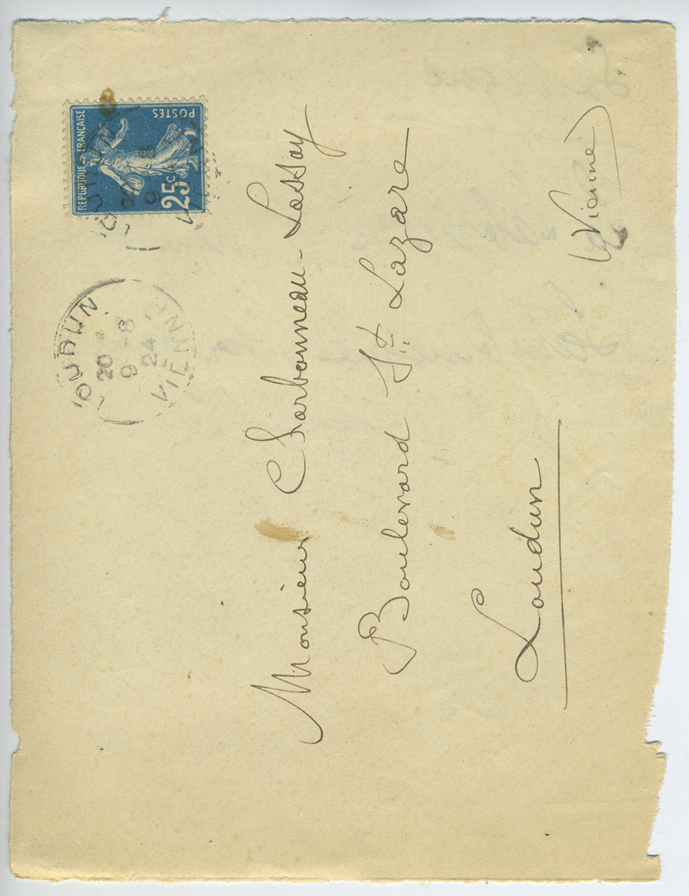 REPUBLIQUE FRANCAISE
POSTES
25c
LOUDUN
20
9 - 8
24
VIENNE
Monsieur Charbonneau-Lassay
Boulevard St. Lazare
Loudun
(Vienne)